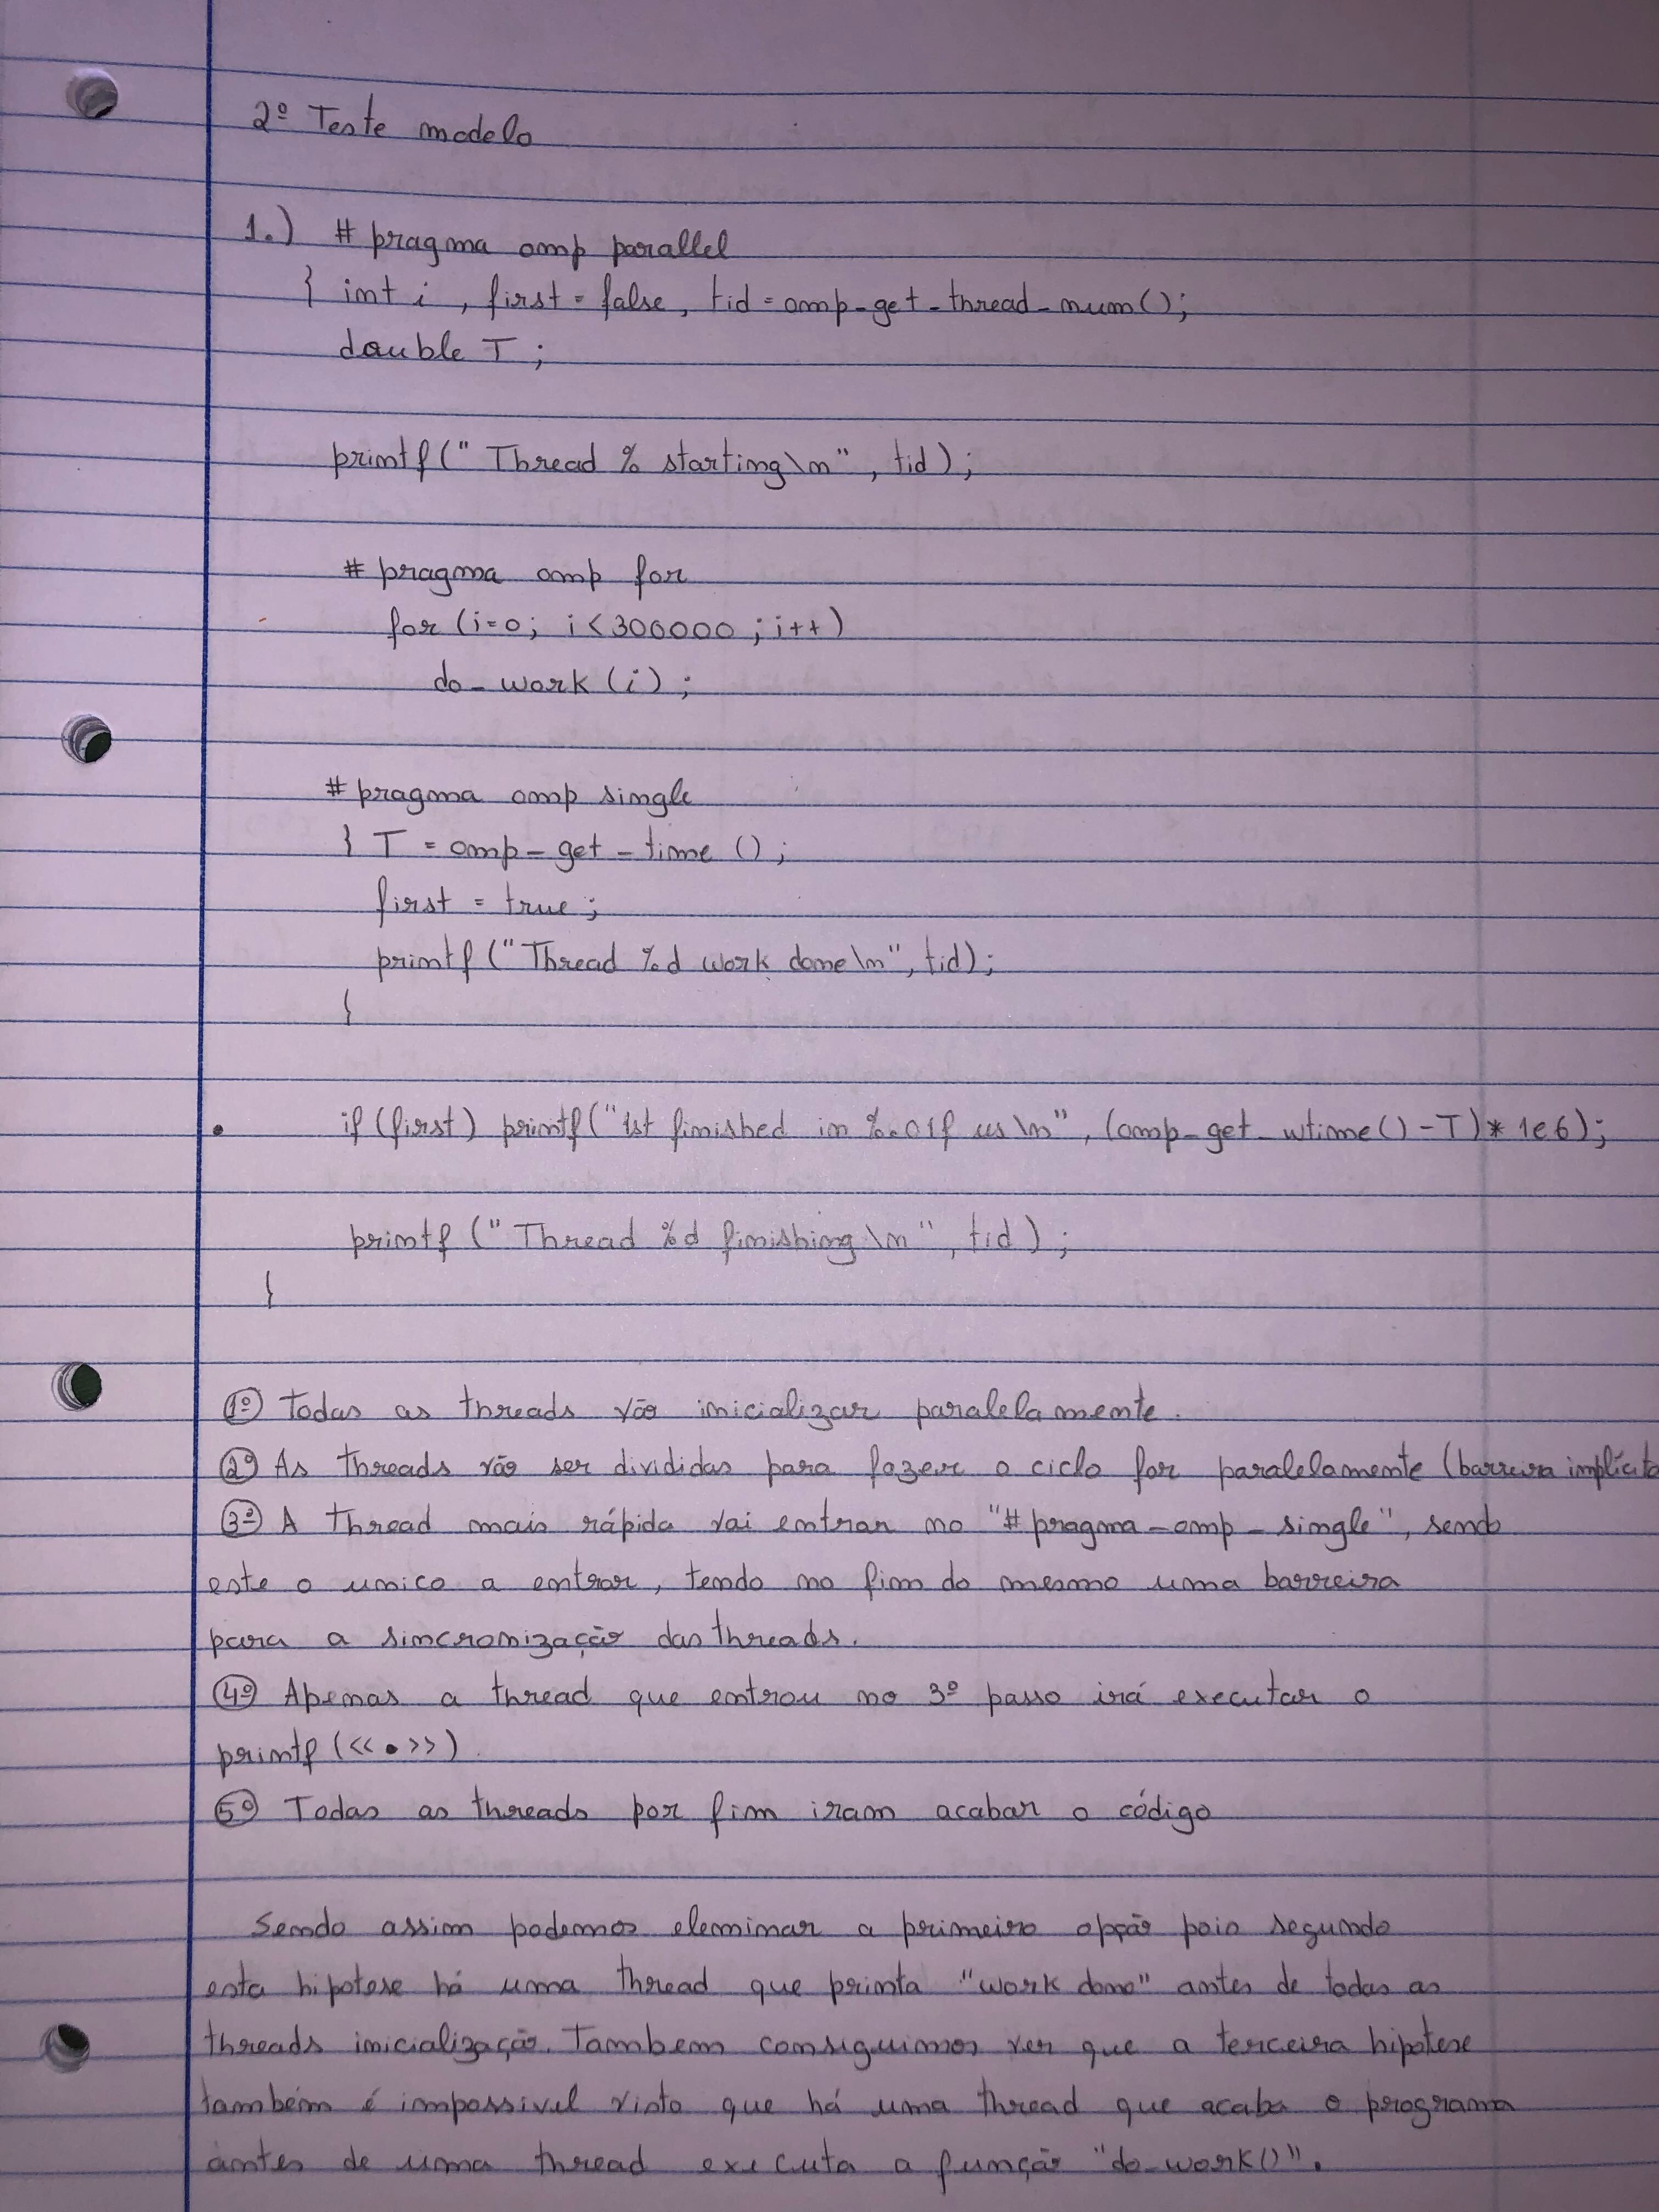 2º Teste modelo
1.) # pragma omp parallel
{ int i , first = false, tid = omp_get_thread_num();
double T ;
printf (" Thread % starting\n" , tid ) ;
# pragma omp for
for (i=0; i<300000 ; i++)
do_work (i) ;
# pragma omp single
{ T = omp_get_time () ;
first = true ;
printf ("Thread %d work done\n", tid);
}
• if (first) printf("1st finished in %.01f us\n" , (omp_get_wtime() - T) * 1e6);
printf (" Thread %d finishing\n" , tid ) ;
}
1º Todas as threads vão inicializar paralelamente.
2º As threads vão ser divididas para fazer o ciclo for paralelamente (barreira implícita
3º A thread mais rápida vai entrar no "# pragma_omp_single", sendo
este o unico a entrar, tendo no fim do mesmo uma barreira
para a sincronização das threads.
4º Apenas a thread que entrou no 3º passo irá executar o
printf (<< • >>)
5º Todas as threads por fim iram acabar o código
Sendo assim podemos elemimar a primeira opção pois segundo
esta hipotese há uma thread que printa "work done" antes de todas as
threads inicialização. Tambem conseguimos ver que a terceira hipotese
também é impossivel visto que há uma thread que acaba o programa
antes de uma thread executa a função "do_work()".